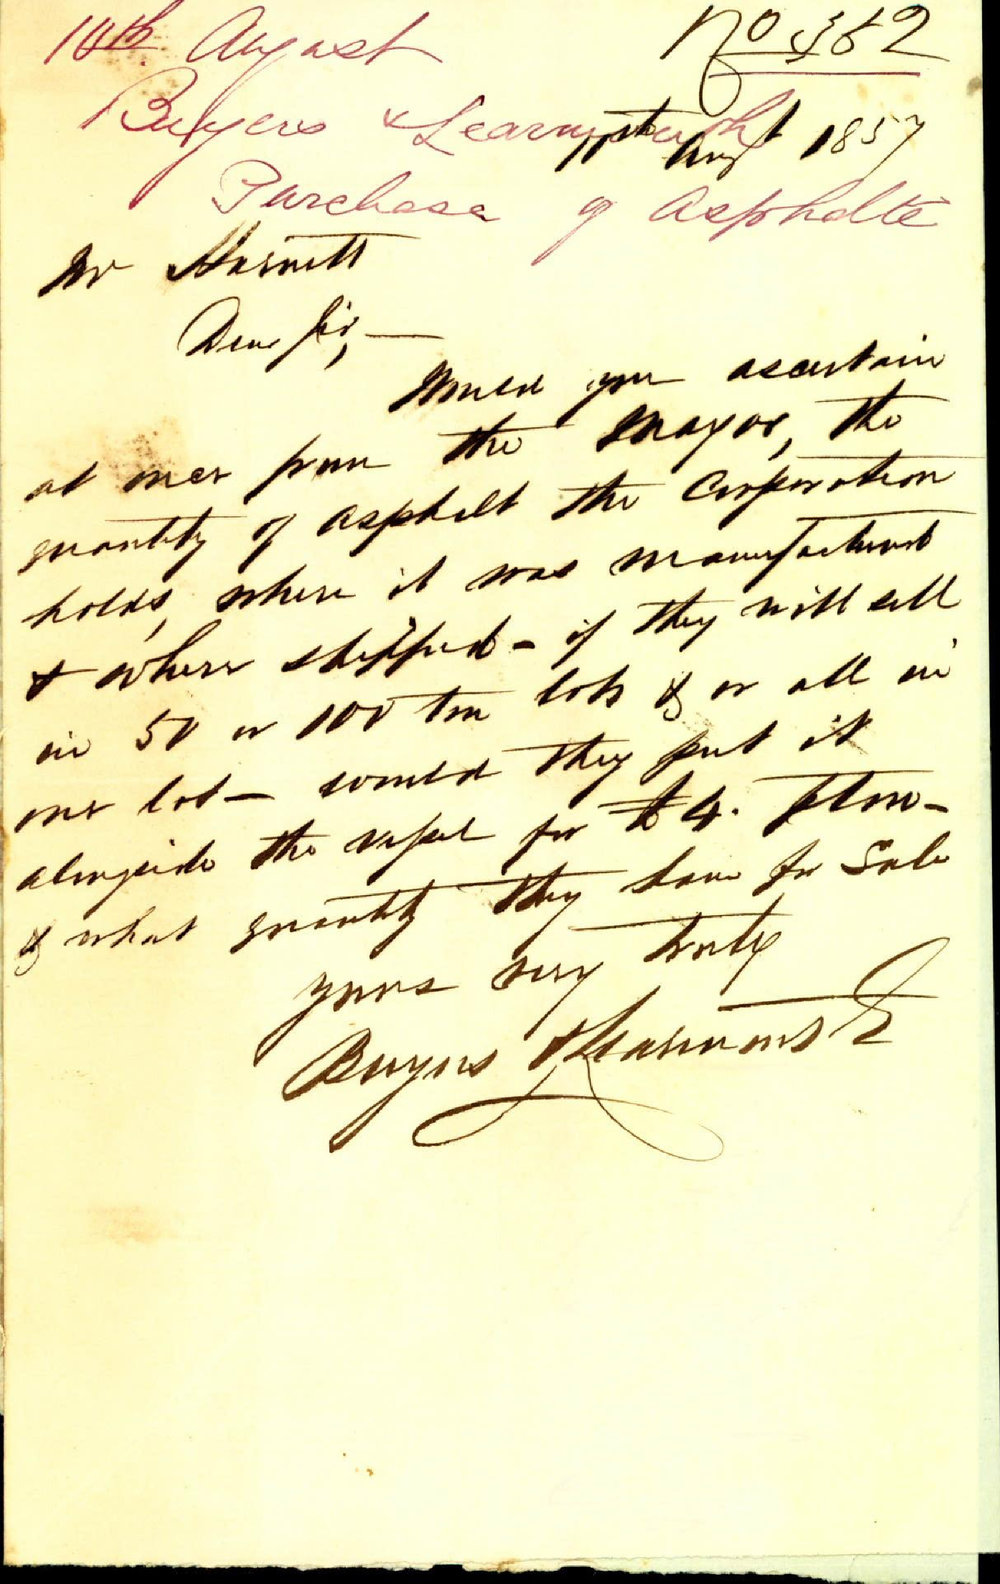 10th August
No 352
Buyers & Learmonth
11th Augt 1857
Purchase of Asphalte
Mr
Dear Sir, —
Would you ascertain
at once from the Mayor, the
quantity of asphalt the Corporation
holds, where it was manufactured
& where shipped – if they will sell
in 50 or 100 ton lots & or all in
one lot – would they put it
alongside the vessel for £4. p ton –
& what quantity they have for Sale
yours very truly
Buyers & Learmonth